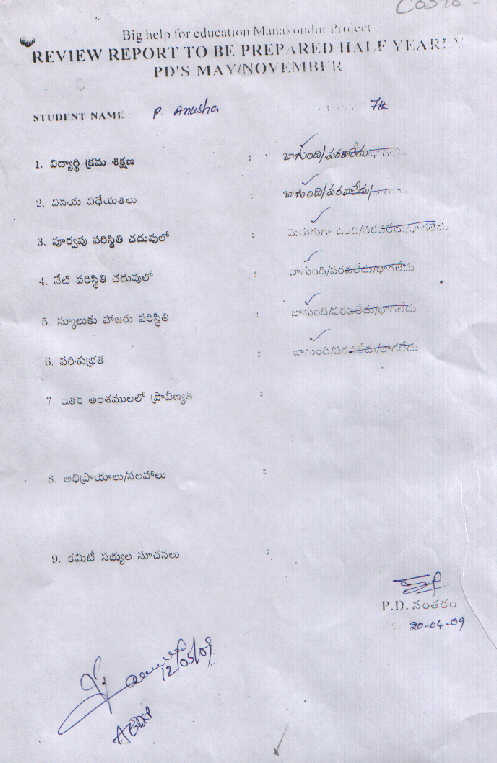 Big help for education Manakondur Project
REVIEW REPORT TO BE PREPARED HALF YEARLY
PD'S MAY/NOVEMBER
STUDENT NAME P. Anusha 7th
1. విద్యార్థి క్రమ శిక్షణ : బాగుంది/పరవాలేదు
2. వినయ విధేయతలు : బాగుంది/పరవాలేదు/
3. పూర్వపు పరిస్థితి చదువులో :
4. నేటి పరిస్థితి చదువులో : బాగుంది/పరవాలేదు/బాగాలేదు
5. స్కూలుకు హాజరు పరిస్థితి : బాగుంది/పరవాలేదు/బాగాలేదు
6. పరిశుభ్రత : బాగుంది/పరవాలేదు/బాగాలేదు
7. ఇతర అంశములలో ప్రావీణ్యత :
8. అభిప్రాయాలు/సలహాలు :
9. కమిటీ సభ్యుల సూచనలు :
P.D. సంతకం
20-04-09
12/05/09